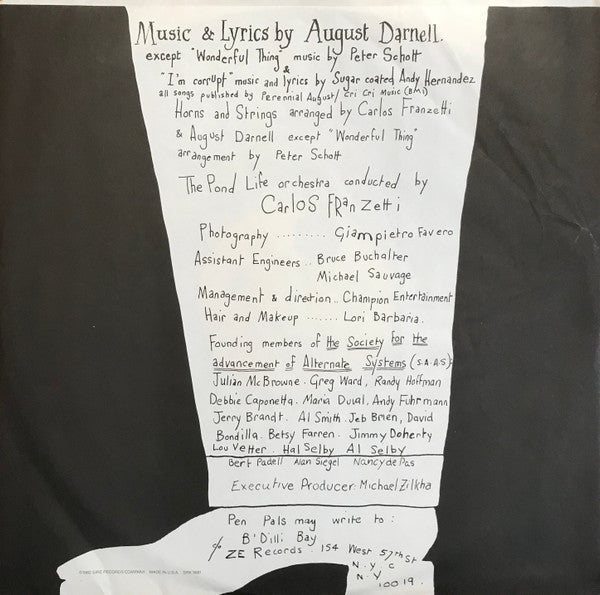 Music & Lyrics by August Darnell.
except "Wonderful Thing" music by Peter Schott
&
"I'm corrupt" music and lyrics by Sugar coated Andy Hernandez
all songs published by Perennial August/ Cri Cri Music (BMI)
Horns and Strings arranged by Carlos Franzetti
& August Darnell except "Wonderful Thing"
arrangement by Peter Schott
The Pond Life orchestra conducted by
Carlos Franzetti
Photography ......... Giampietro Favero
Assistant Engineers .. Bruce Buchalter
Michael Sauvage
Management & direction.. Champion Entertainment
Hair and Makeup ....... Lori Barbaria.
Founding members of the Society for the
advancement of Alternate Systems (S.A.A.S)
Julian McBrowne. Greg Ward, Randy Hoffman
Debbie Caponetta. Maria Duval, Andy Fuhrmann
Jerry Brandt. Al Smith. Jeb Brien, David
Bondilla. Betsy Farren. Jimmy Doherty
Lou Vetter. Hal Selby Al Selby
Bert Padell Alan Siegel Nancy de Pas
Executive Producer: Michael Zilkha
Pen Pals may write to :
B'Dilli Bay
c/o ZE Records . 154 West 57th St
N.Y.C
N.Y
10019.
1982 SIRE RECORDS COMPANY MADE IN U.S.A.